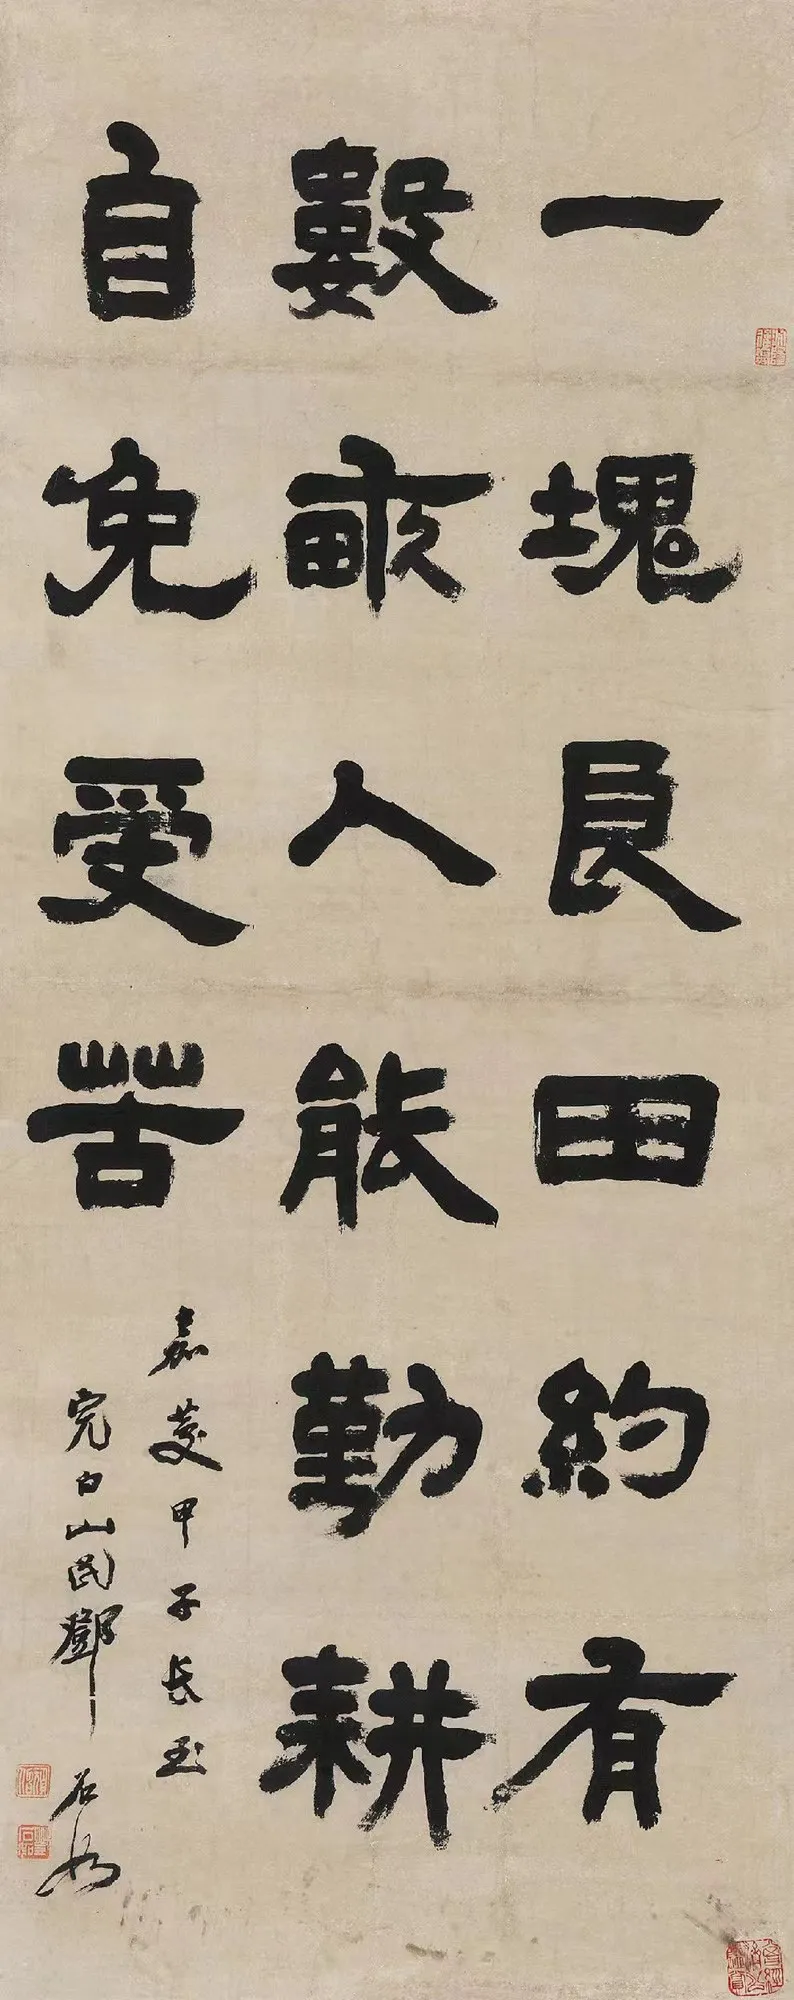 一塊良田約有
數畝人能勤耕
自免受苦
嘉慶甲子長至
完白山民鄧石如